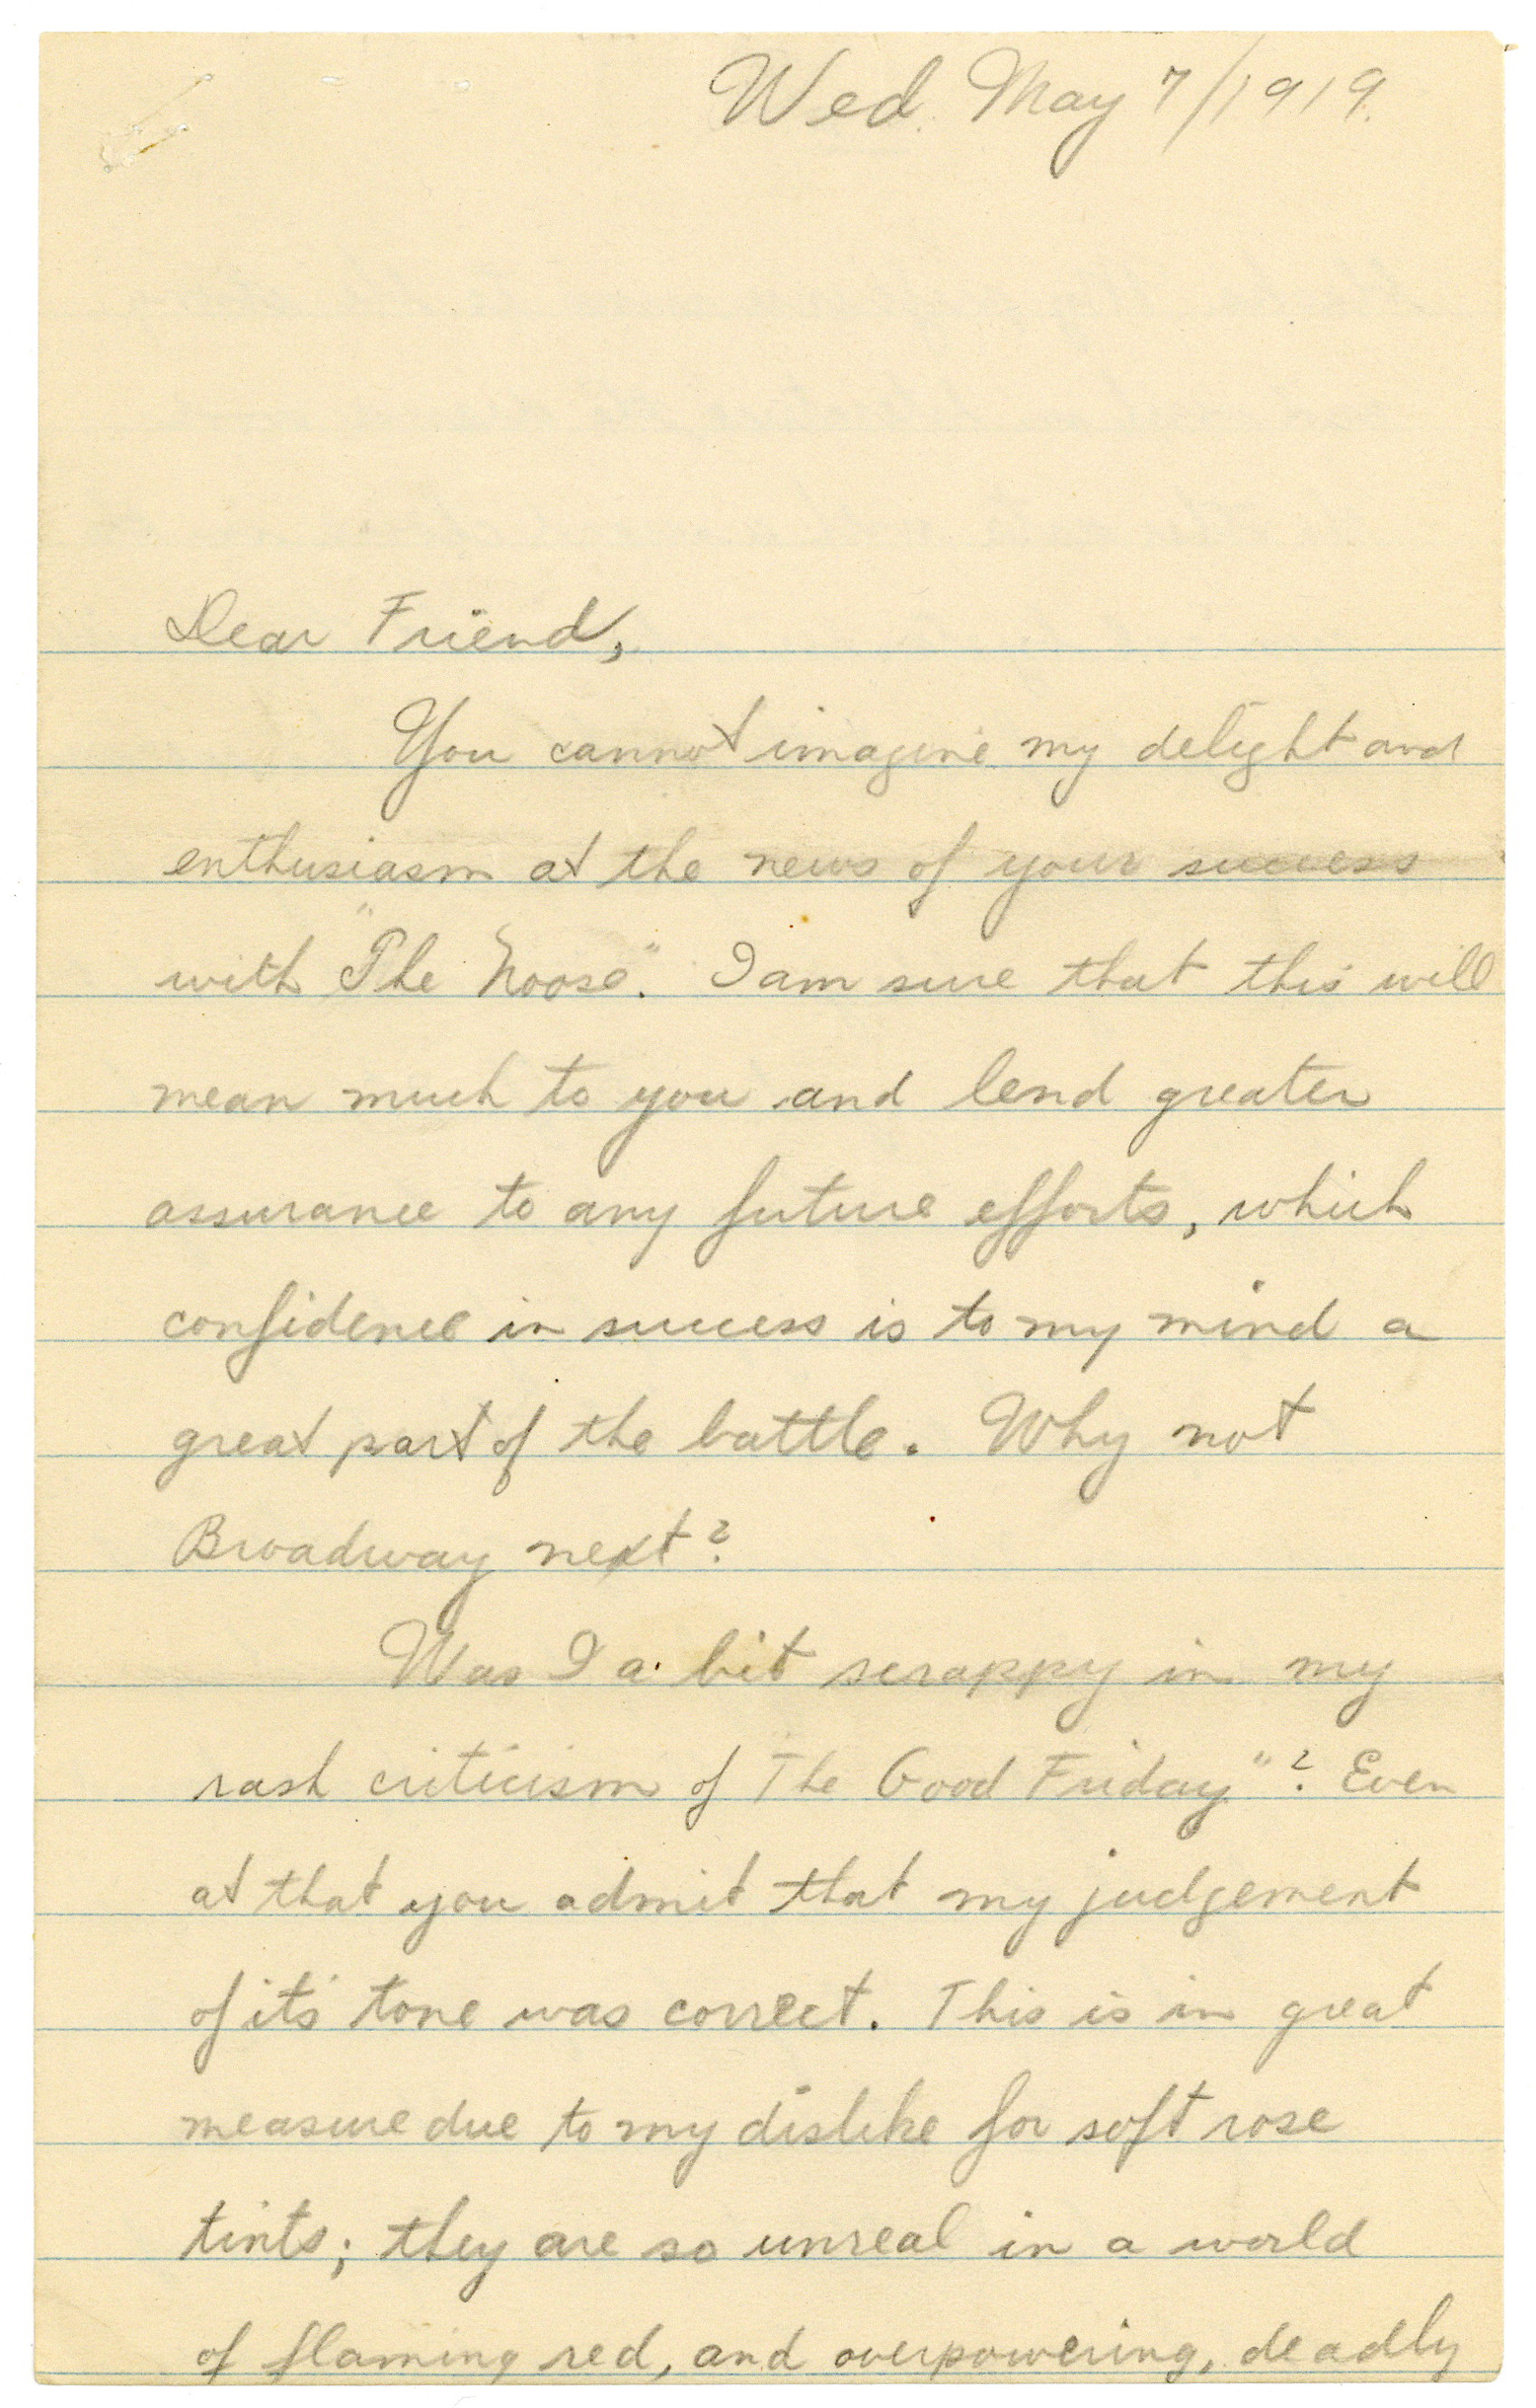 Wed. May 7/1919.
Dear Friend,
You cannot imagine my delight and
enthusiasm at the news of your success
with "The Noose". I am sure that this will
mean much to you and lend greater
assurance to any future efforts, which
confidence in success is to my mind a
great part of the battle. Why not
Broadway next?
Was I a bit scrappy in my
rash criticism of The Good Friday"? Even
at that you admit that my judgement
of it's tone was correct. This is in great
measure due to my dislike for soft rose
tints; they are so unreal in a world
of flaming red, and overpowering, deadly